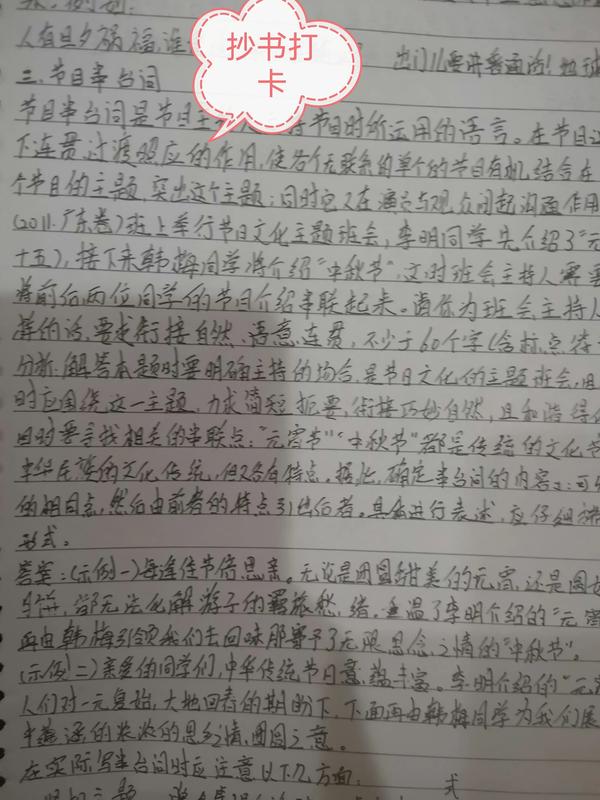 抄书打
卡
人有旦夕祸福,谁
出门儿要讲普通话!
三.节目串台词
节目串台词是节目主 持节目时所运用的语言。在节目
下连贯,过渡照应的作用,使各个无联系的单个的节目有机结合在
个节目的主题,突出这个主题;同时它又在演员与观众间起沟通作用
(2011.广东卷)班上举行节日文化主题班会,李明同学先介绍了“元
十五),接下来韩梅同学将介绍“中秋节”,这时班会主持人需要
将前后两位同学的节日介绍串联起来。请你为班会主持人
要求衔接自然、语意连贯,不少于60个字(含标点符
分析.解答本题时要明确主持的场合,是节日文化的主题班会,
时应围绕这一主题,力求简短扼要,衔接巧妙自然,且和谐得
同时要寻找相关的串联点:“元宵节”“中秋节”都是传统的文化节
中华民族的文化传统,但又各有特点。据此,确定串台词的内容
的相同点,然后由前者的特点引出后者。具体进行表述,应仔细
形式。
答案:(示例一)每逢佳节倍思亲。无论是团圆甜美的元宵,还是
月饼,都无法化解游子的羁旅愁绪。重温了李明介绍的“元宵
再由韩梅引领我们去回味那寄予了无限思念之情的“中秋节”。
(示例二)亲爱的同学们,中华传统节日意蕴丰富。李明介绍的“元
人们对一元复始,大地回春的期盼下,下面再由韩梅同学为我们展
中蕴涵的浓浓的思乡之情,团圆之意。
在实际写串台词时应注意以下几方面: